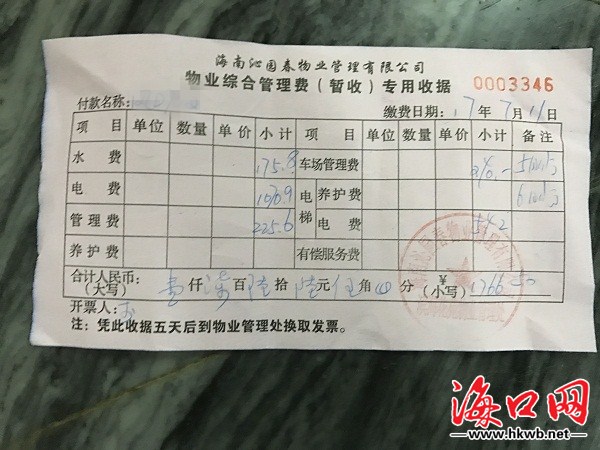 海南沁园春物业管理有限公司
物业综合管理费（暂收）专用收据 0003346
付款名称： 缴费日期：17年7月16日
项 目 单位 数量 单价 小计 项 目 单位 数量 单价 小计 备注
水 费 175.8 车场管理费
电 费 1070.9 电梯 养护费
管理费 225.6 电 费 54.2
养护费 有偿服务费
合计人民币：（大写） 壹仟柒百陆拾陆元伍角 分 ￥（小写） 1766
开票人：
注：凭此收据五天后到物业管理处换取发票。
海口网
www.hkwb.net